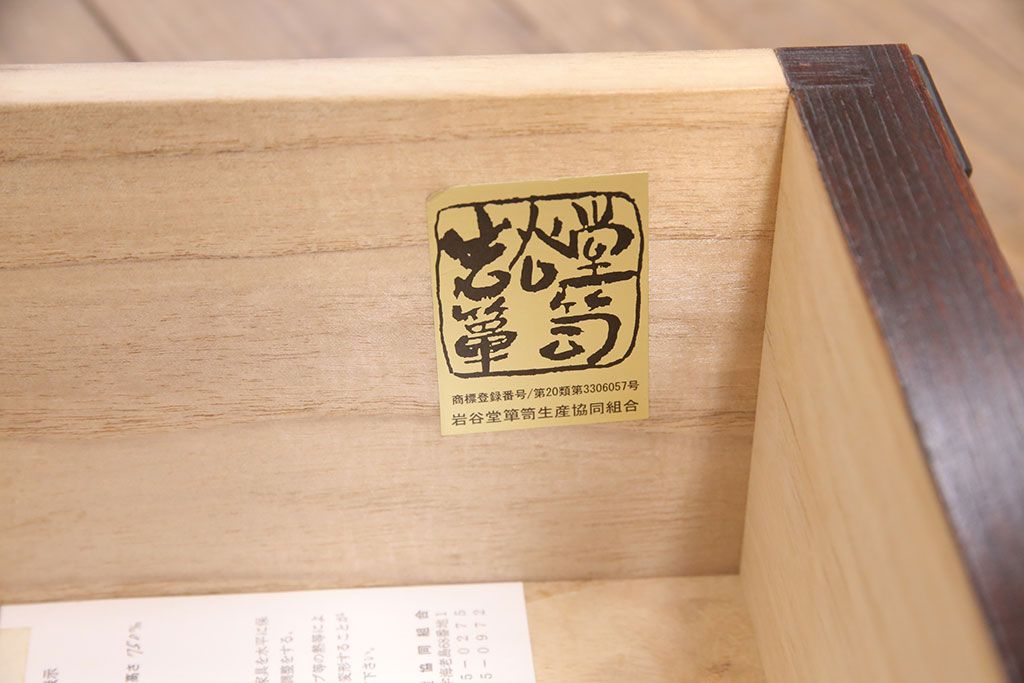 岩谷堂
箪笥
商標登録番号/第20類第3306057号
岩谷堂箪笥生産協同組合
高さ 750㎜
家具を水平に保
調整をする。
プ等の熱等によ
変形することが
下さい。
協同組合
字海老島68番地1
5-0275
5-0972